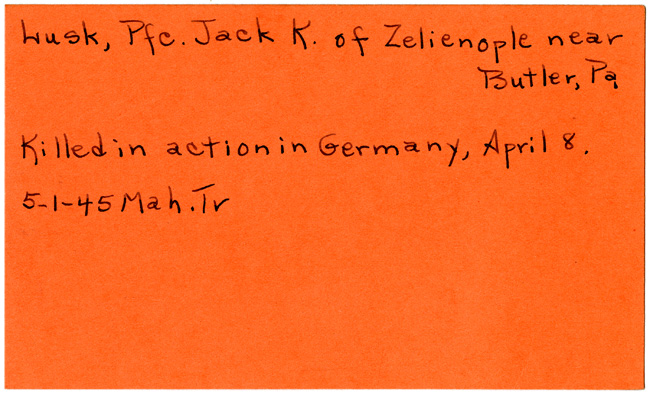 Lusk, Pfc. Jack K. of Zelienople near
Butler, Pa
Killed in action in Germany, April 8.
5-1-45 Mah. Tr